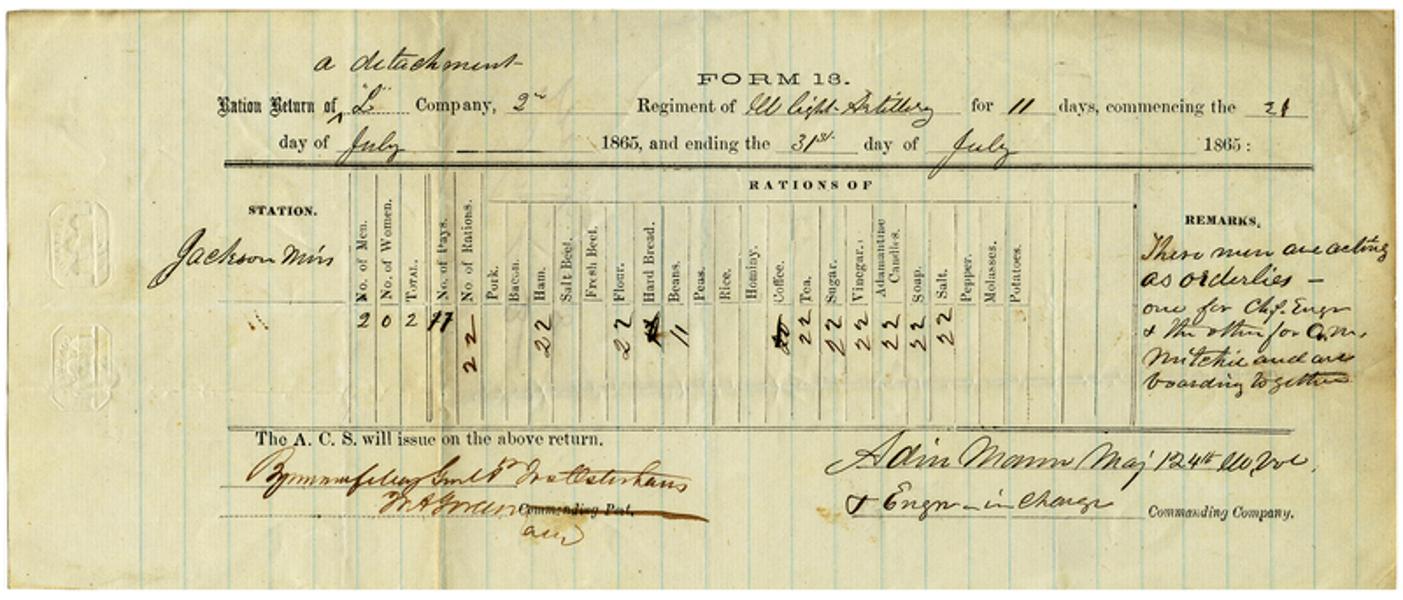 a detachment
FORM 13.
Ration Return of "L" Company, 2nd Regiment of Ill Light Artillery for 11 days, commencing the 21
day of July 1865, and ending the 31st day of July 1865:
RATIONS OF
STATION.
No. of Men.
No. of Women.
TOTAL.
No. of Days.
No. of Rations.
Pork.
Bacon.
Ham.
Salt Beef.
Fresh Beef.
Flour.
Hard Bread.
Beans.
Peas.
Rice.
Hominy.
Coffee.
Tea.
Sugar.
Vinegar.
Adamantine Candles.
Soap.
Salt.
Pepper.
Molasses.
Potatoes.
REMARKS.
Jackson Miss
2 0 2 11 22 22 22 11 22 22 22 22 22 22
These men are acting
as orderlies –
one for Chf. Engr
& the other for Q.M.
Mitchie and are
boarding together
The A. C. S. will issue on the above return.
By Osterhaus
Commanding Post.
Adin Mann Maj 124th Ill Vol.
& Engr in Charge Commanding Company.